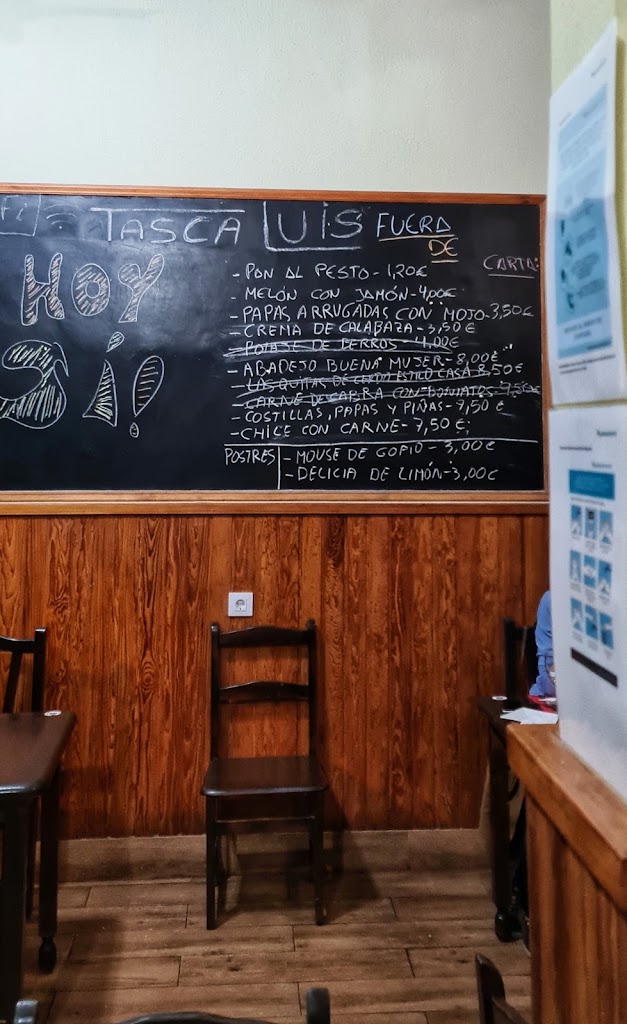 TASCA LUIS FUERA DE CARTA:
HOY
SÍ!
- PAN AL PESTO - 1,20€
- MELÓN CON JAMÓN - 4,00€
- PAPAS ARRUGADAS CON MOJO - 3,50€
- CREMA DE CALABAZA - 3,50 €
- POTAJE DE BERROS - 4,00€
- ABADEJO BUENA MUJER - 8,00€
- CARNE DE CABRA CON BONIATOS - 7,50€
- COSTILLAS, PAPAS Y PIÑAS - 7,50 €
- CHILE CON CARNE - 7,50 €;
POSTRES
- MOUSE DE GOFIO - 3,00€
- DELICIA DE LIMÓN - 3,00€